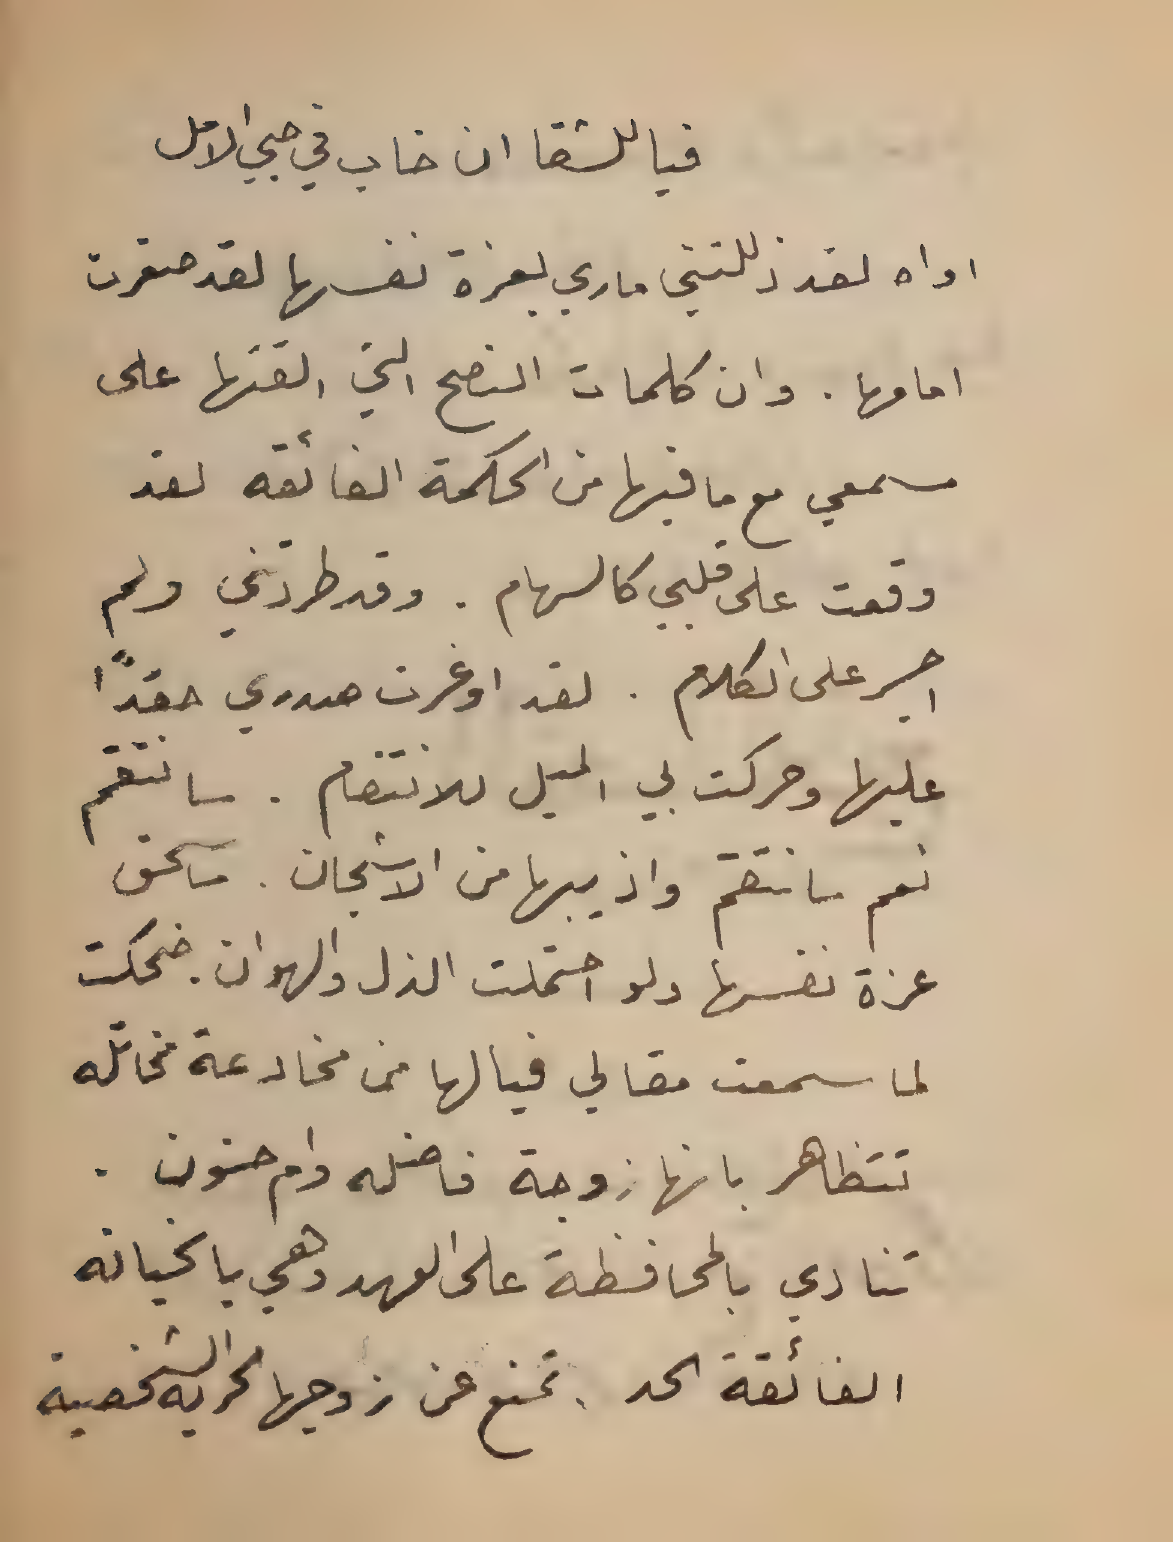 فيا للشقا ان خاب في حبي الامل
اواه لقد ذللتني ماري بعزة نفسها لقد صغرت
امامها . وان كلمات النصح التي القتها على
مسمعي مع ما فيها من الحكمة الفائقه لقد
وقعت على قلبي كالسهام . وقد طردتني ولم
اجسر على الكلام . لقد اوغرت صدري حقدًا
عليها وحركت بي الميل للانتقام . سانتقم
نعم سانتقم واذيبها من الاشجان . ساسحق
عزة نفسها ولو احتملت الذل والهوان . ضحكت
لما سمعت مقالي فيالها من مخادعة مخاتله
تتظاهر بانها زوجة فاضله وام حنون .
تنادي بالمحافظة على العهد وهي يا لخيانه
الفائقة الحد . تمنع عن زوجها الحريه الشخصية